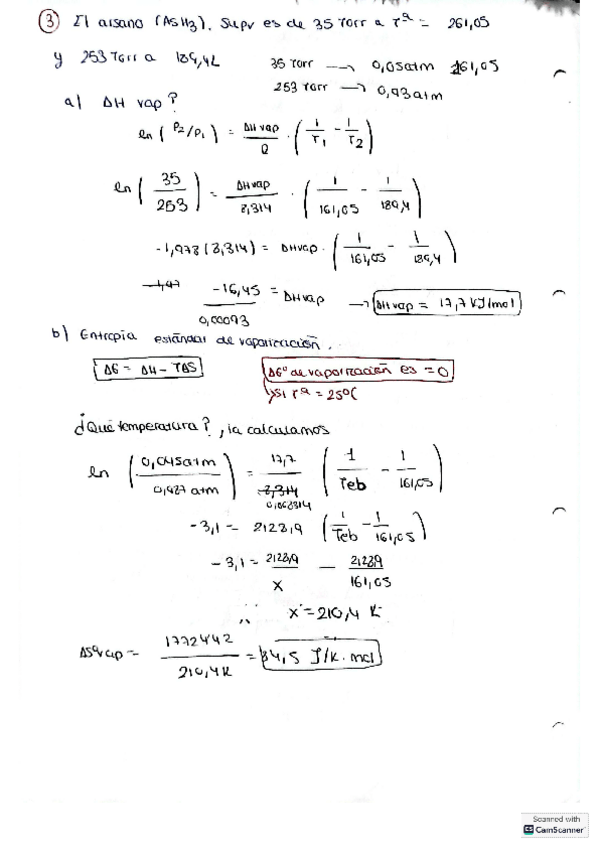 ③ El arsano (AsH3). Supv es de 35 Torr a Tª = 261,05
y 253 Torr a 189,42
35 Torr → 0,05atm 261,05
253 Torr → 0,93atm
a) ΔH vap?
ln ( P2/P1 ) = ΔH vap / R · ( 1/T1 - 1/T2 )
ln ( 35 / 253 ) = ΔHvap / 8,314 · ( 1/161,05 - 1/189,4 )
-1,978 (8,314) = ΔHvap · ( 1/161,05 - 1/189,4 )
-16,45 / 0,00093 = ΔHvap → ΔHvap = 17,7 KJ/mol
b) Entropía estándar de vaporización.
ΔG = ΔH - TΔS
ΔGº de vaporización es = 0
si Tª = 25ºC
¿Qué temperatura?, la calculamos
ln ( 0,045atm / 0,927 atm ) = 17,7 / 8,314 ( 1/Teb - 1/161,05 )
-3,1 = 2128,9 ( 1/Teb - 1/161,05 )
-3,1 = 2128,9 / X - 2128,9 / 161,05
∴ X = 210,4 K
ΔSºvap = 1772442 / 210,4K = 84,5 J/K·mol
Scanned with
CamScanner